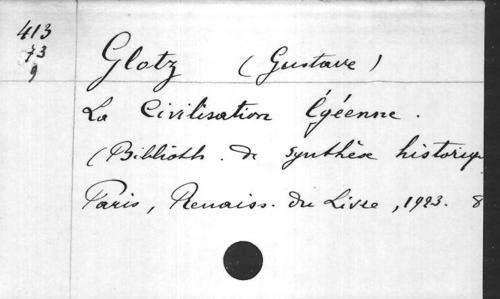 413
73
9
Glotz (Gustave)
La Civilisation Égéenne.
(Biblioth. de synthèse historiq
Paris, Renaiss. du Livre, 1923. 8